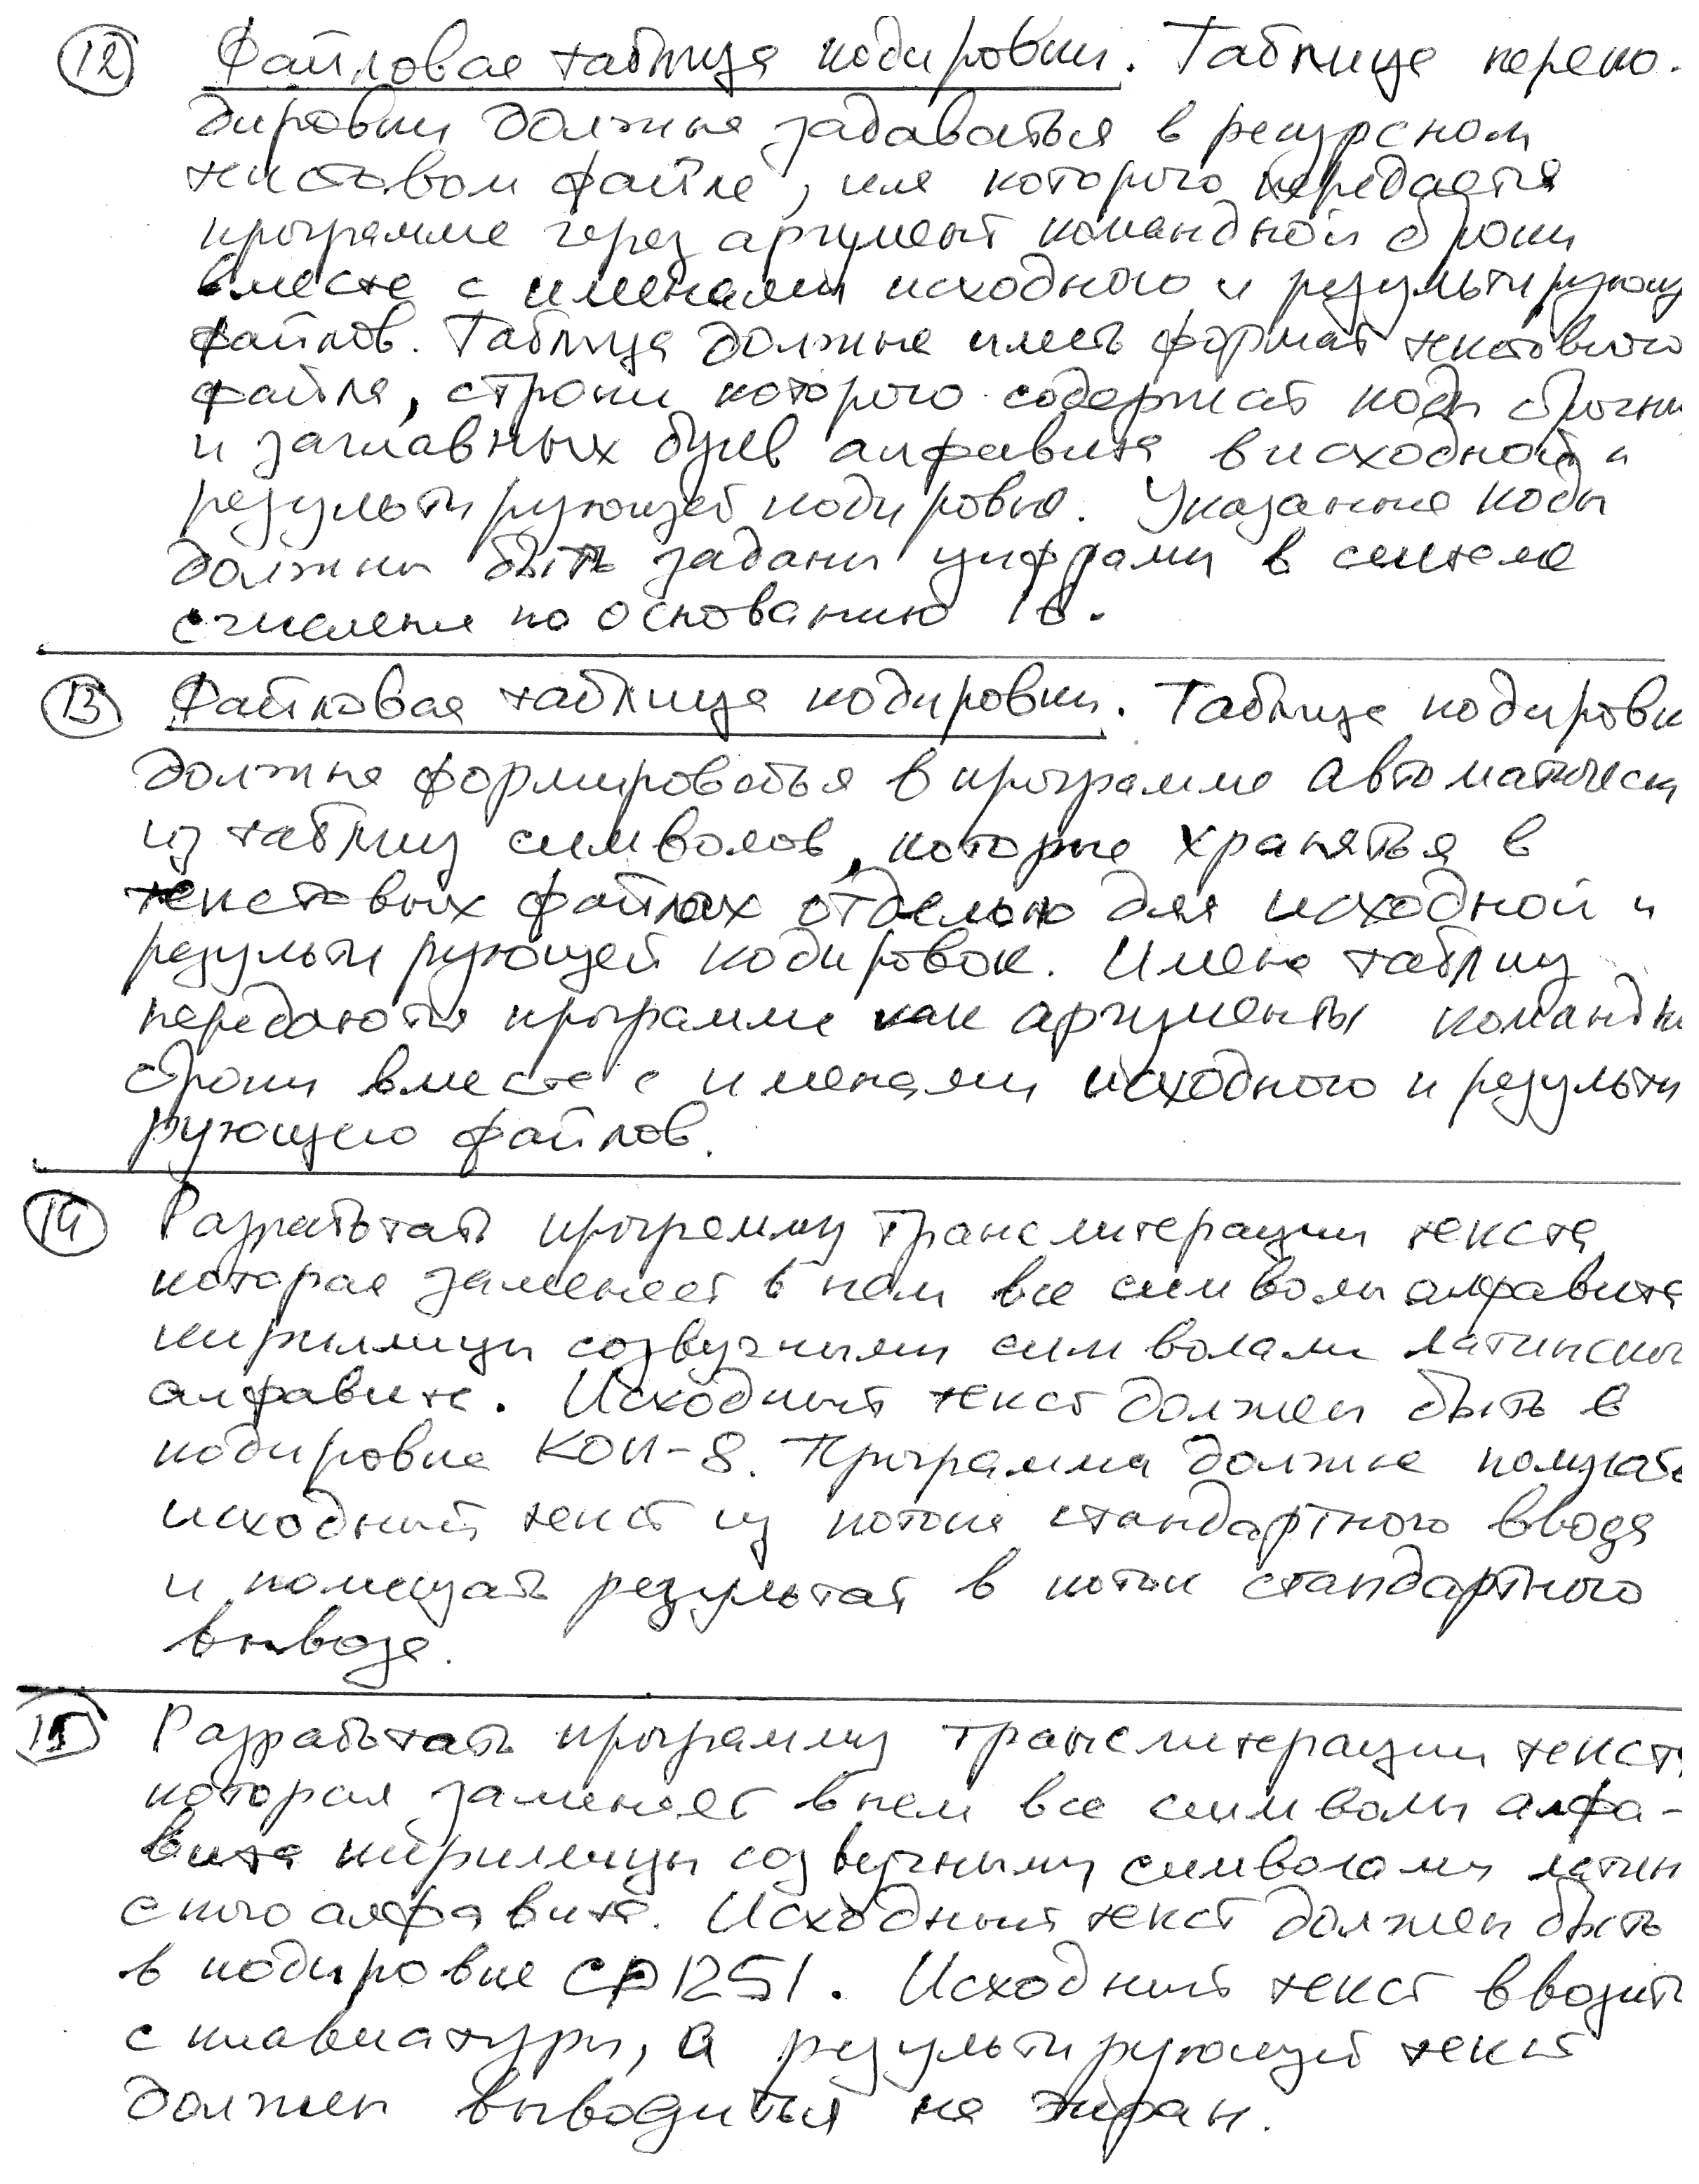 12 Файловая таблица кодировки. Таблица переко-
дировки должна задаваться в ресурсном
текстовом файле, имя которого передается
программе через аргумент командной строки
вместе с именами исходного и результирующ
файлов. Таблица должна иметь формат текстового
файла, строки которого содержат коды строчны
и заглавных букв алфавита в исходной и
результирующей кодировке. Указанные коды
должны быть заданы цифрами в системе
счисления по основанию 16.
13 Файловая таблица кодировки. Таблица кодировк
должна формироваться в программе автоматическ
из таблиц символов, которые хранятся в
текстовых файлах отдельно для исходной и
результирующей кодировок. Имена таблиц
передаются программе как аргументы командн
строки вместе с именами исходного и результи
рующего файлов.
14 Разработать программу транслитерации текста,
которая заменяет в нем все символы алфавита
кириллицы созвучными символами латинског
алфавита. Исходный текст должен быть в
кодировке КОИ-8. Программа должна получать
исходный текст из потока стандартного ввода
и помещать результат в поток стандартного
вывода.
15 Разработать программу транслитерации текста,
которая заменяет в нем все символы алфа-
вита кириллицы созвучными символами латин
ского алфавита. Исходный текст должен быть
в кодировке CP1251. Исходный текст вводить
с клавиатуры, а результирующий текст
должен выводиться на экран.